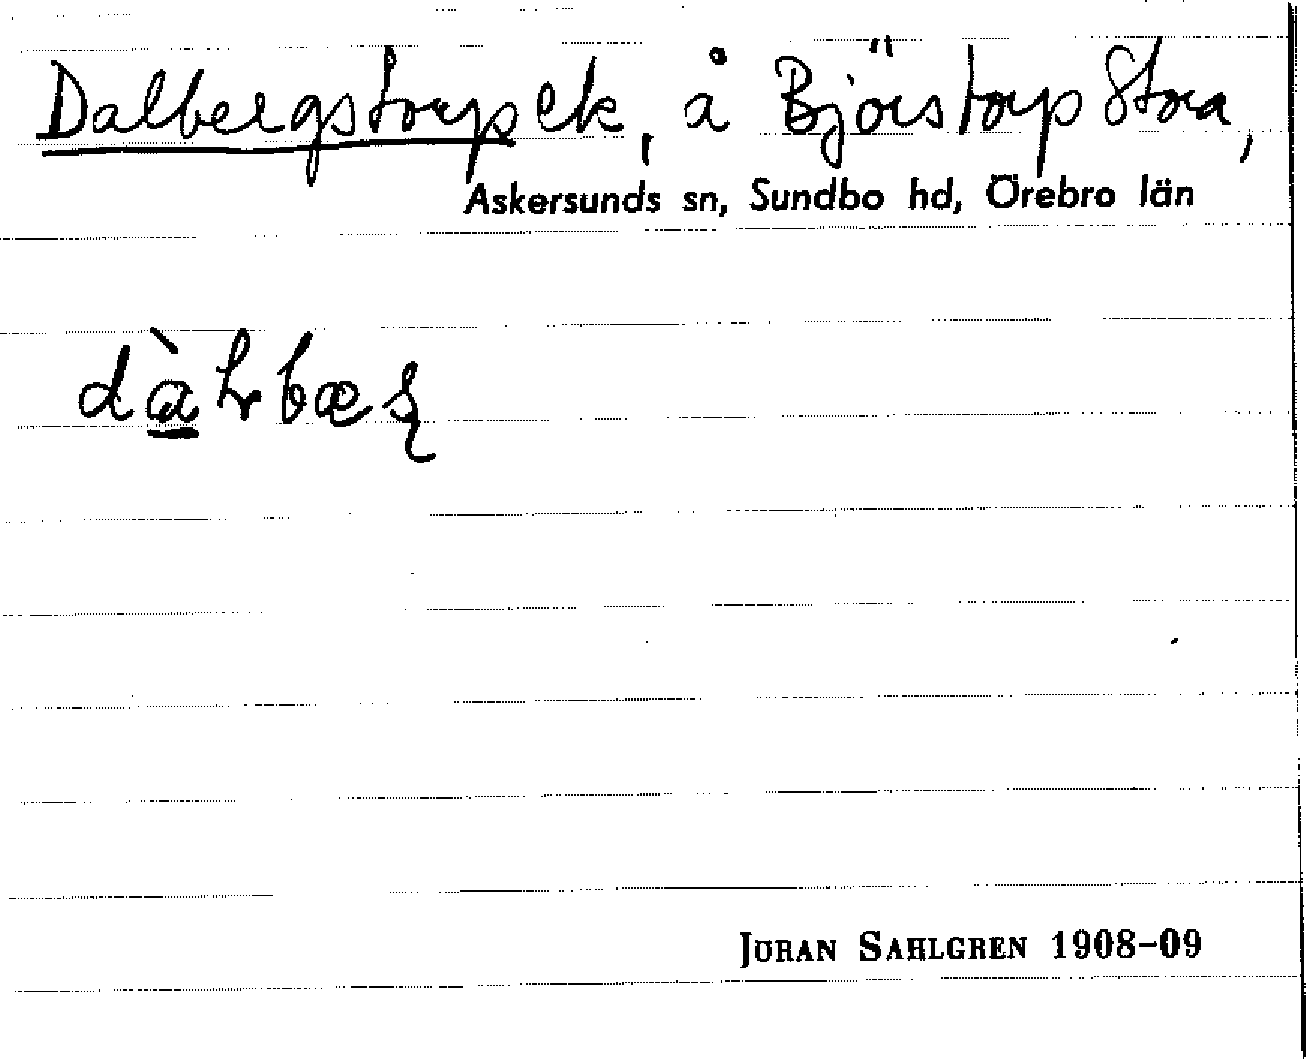 Dalbergstorp ek, å Björstorp Stora,
Askersunds sn, Sundbo hd, Örebro län
JÖRAN SAHLGREN 1908-09